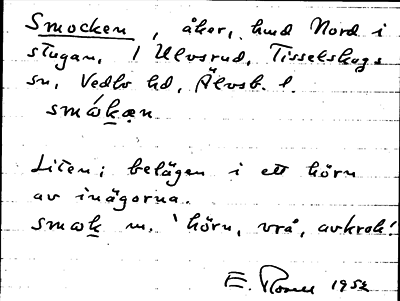 Smocken, åker, hmd Nord i
stugan, 1 Ulvsrud, Tisselskogs
sn, Vedbo hd, Älvsb. l.
smώkæn
Liten; belägen i ett hörn
av inägorna.
smωk m. 'hörn, vrå, avkrok'
E. 1952